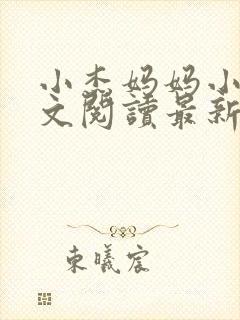 小李妈妈小
文閱讀最新
東曦宸